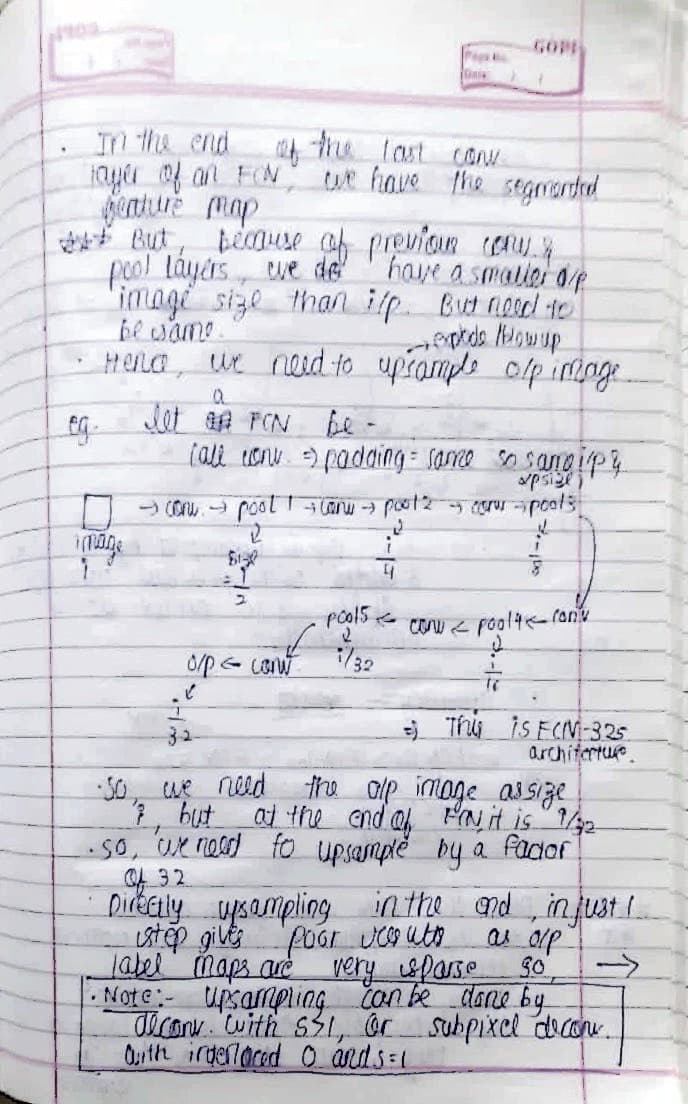 GOPI
Page No.
Date
. In the end of the last conv.
layer of an FCN, we have the segmented
feature map
*** But, because of previous conv. &
pool layers, we do have a smaller o/p
image size than i/p. But need to
be same.
→ explode / blow up
. Hence, we need to upsample o/p image.
eg. let a FCN be -
(all conv. ⇒ padding = same so same i/p &
o/p size)
→ conv. → pool 1 → conv → pool 2 → conv → pool 3
image
i
size
= i/2
i/4
i/8
pool5 ← conv ← pool4 ← conv
o/p ← conv
i/32
i/16
i/32
⇒ This is FCN-32s
architecture.
. So, we need the o/p image as size
i, but at the end of FCN it is i/32
. So, we need to upsample by a factor
of 32
. Directly upsampling in the end, in just 1
step gives poor results as o/p
label maps are very sparse so, →
. Note:- Upsampling can be done by
deconv. with s>1, or subpixel deconv.
with interlaced 0 and s=1